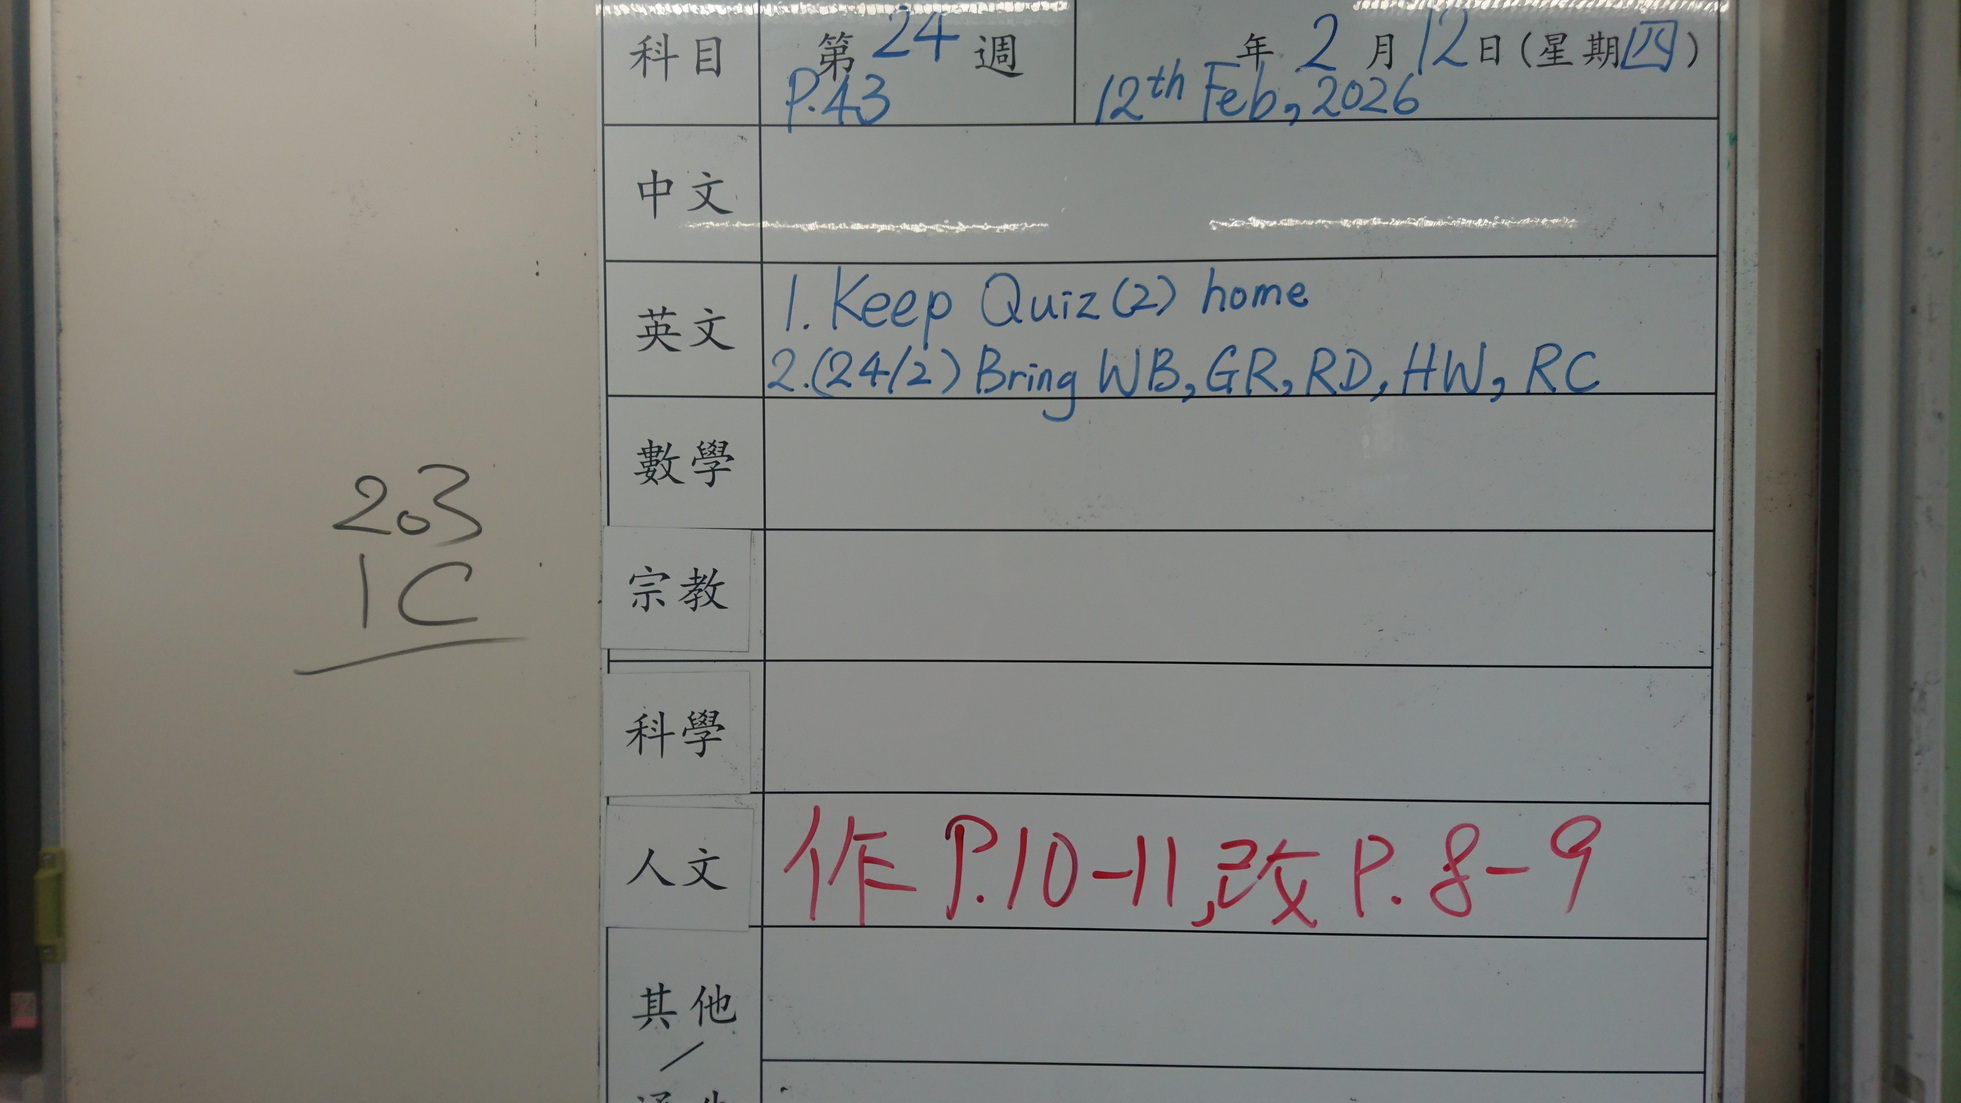 科目 第24週 年2月12日(星期四)
P.43 12th Feb, 2026
中文
英文 1. Keep Quiz(2) home
2.(24/2) Bring WB, GR, RD, HW, RC
數學
203
1C
宗教
科學
人文 作 P.10-11,改 P.8-9
其他
／